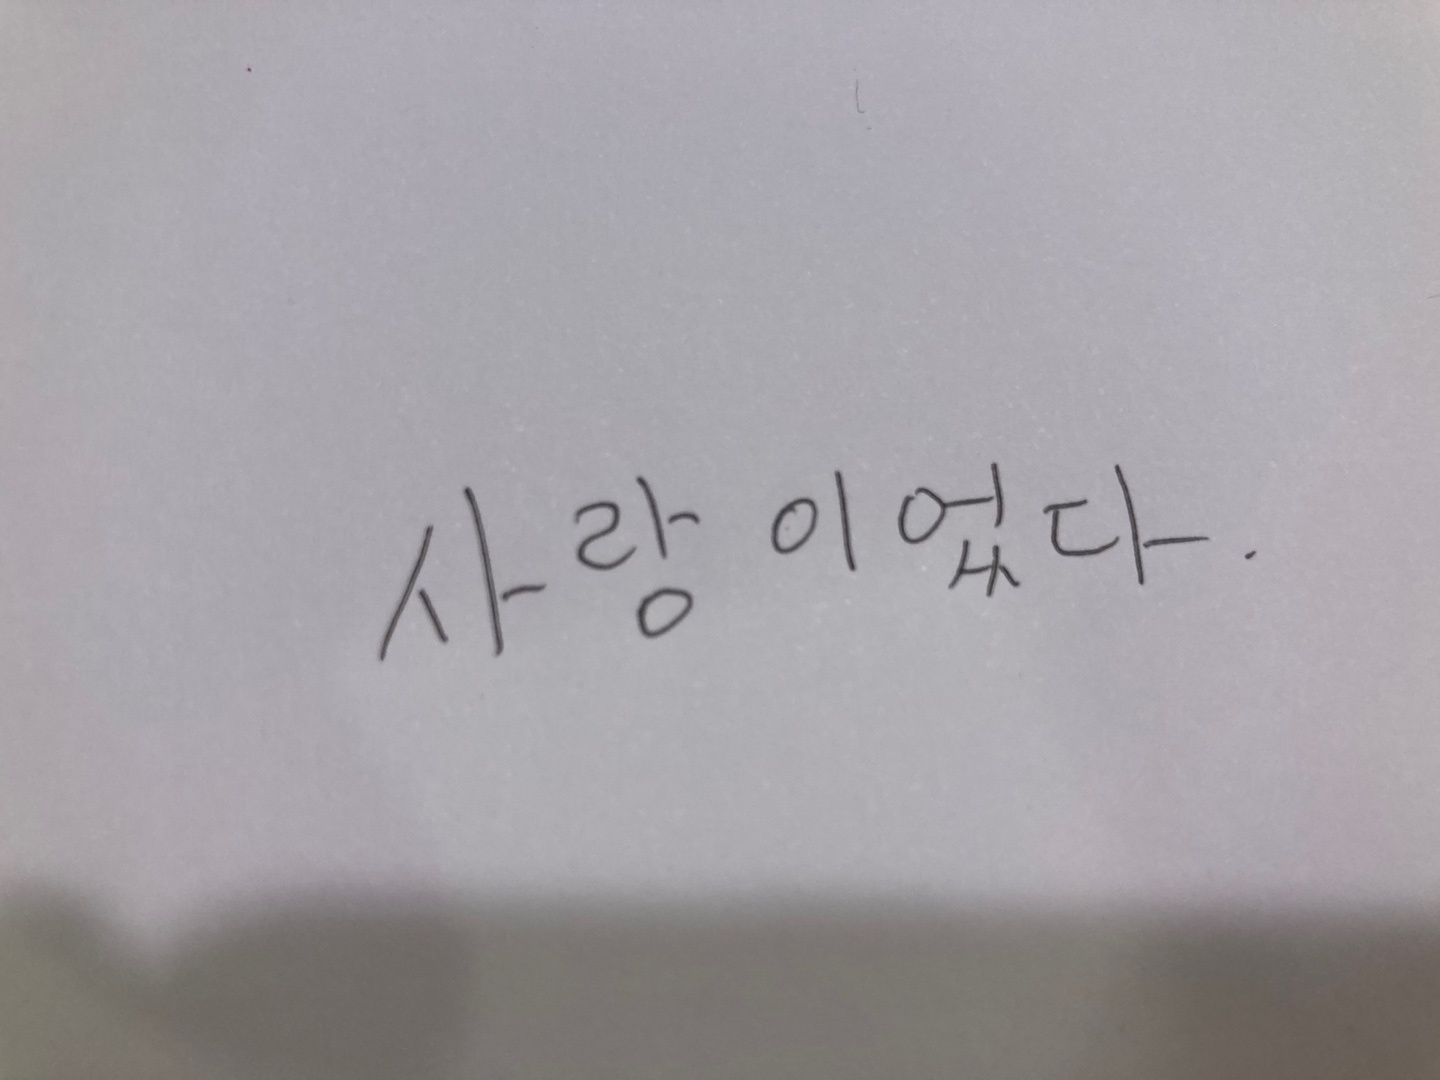 사랑이었다.